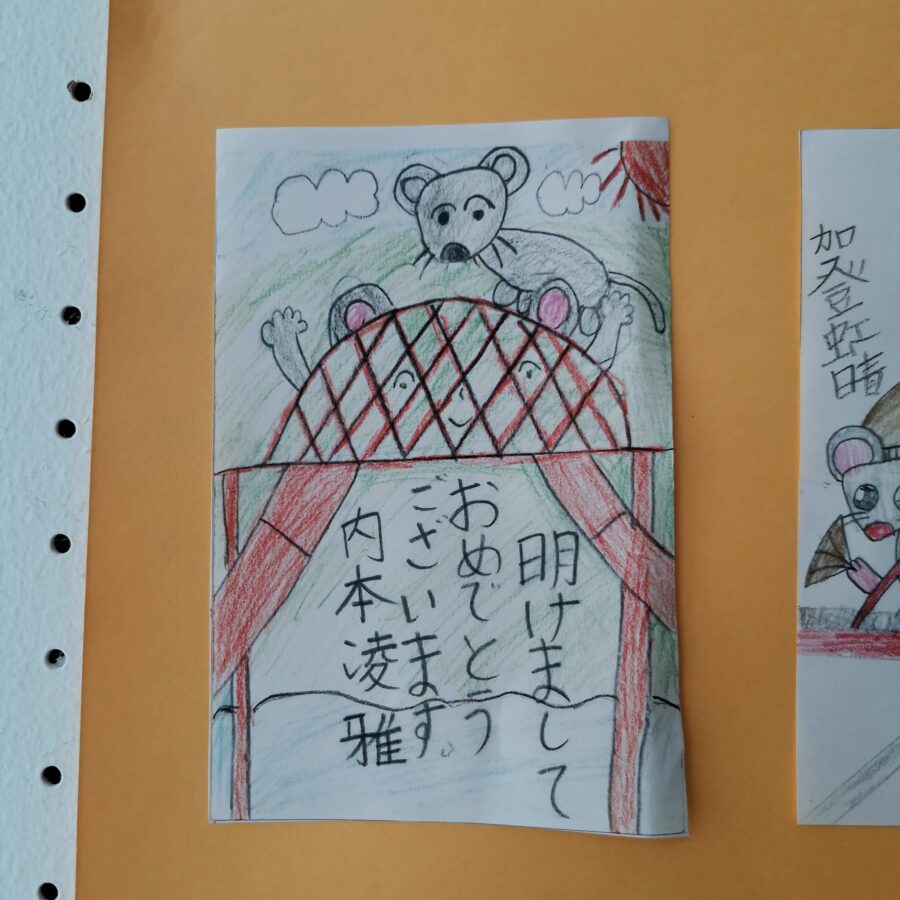 明けまして
おめでとう
ございます。
内本凌雅
加登虹晴